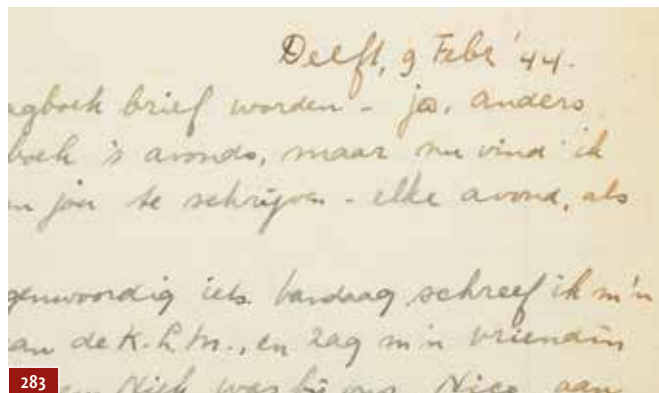 Delft, 9 Febr '44.
agboek brief worden - ja, anders
boek 's avonds, maar nu vind ik
n jou te schrijven - elke avond, als
genwoordig iets. Vandaag schreef ik m'n
an de K.L.M., en zag m'n vriendin
was bij ons. Nico aan
283